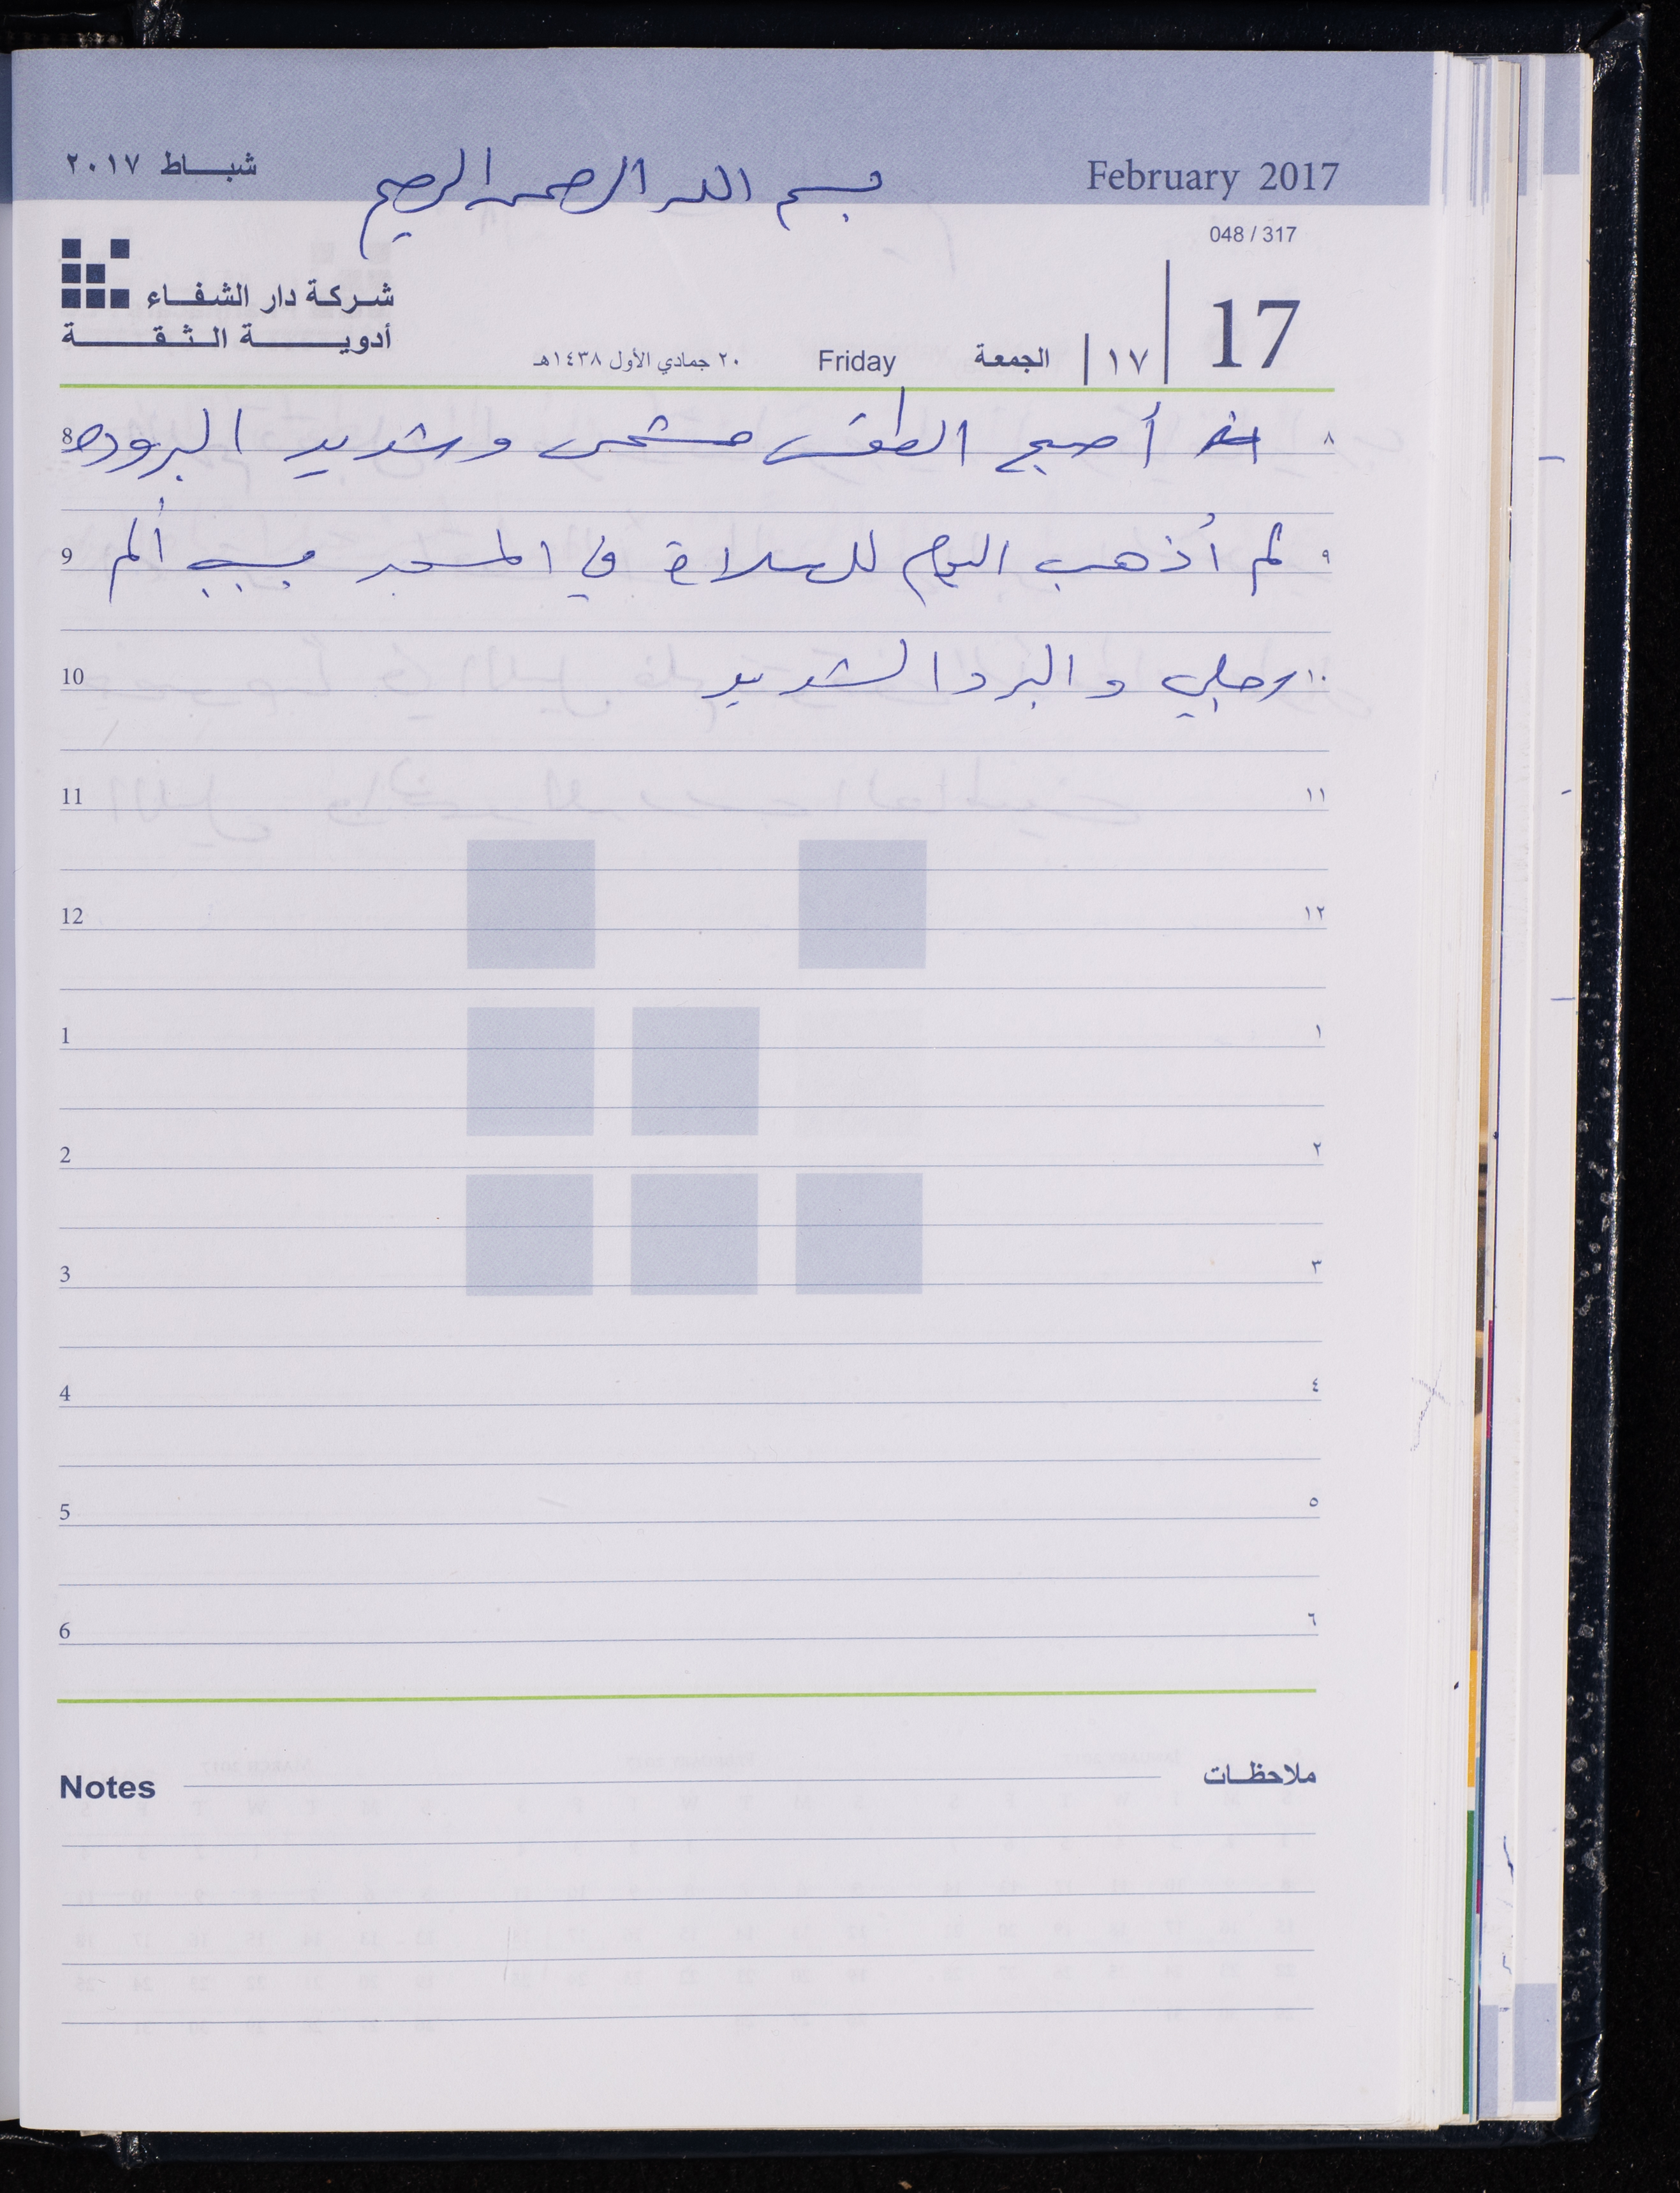 شباط ٢٠١٧
بسم الله الرحمن الرحيم
February 2017
048 / 317
شركة دار الشفاء
أدوية الثقة
17
١٧
الجمعة
Friday
٢٠ جمادي الأول ١٤٣٨هـ
٨ أصبح الطقس مشمس وشديد البروده 8
٩ لم أذهب اليوم للصلاة في المسجد بسبب ألم 9
١٠ رجلي والبرد الشديد 10
١١ 11
١٢ 12
١ 1
٢ 2
٣ 3
٤ 4
٥ 5
٦ 6
Notes ملاحظات